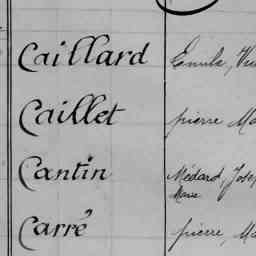 Caillard Emile,
Caillet pierre
Cantin Médard,
Marie
Carré pierre,